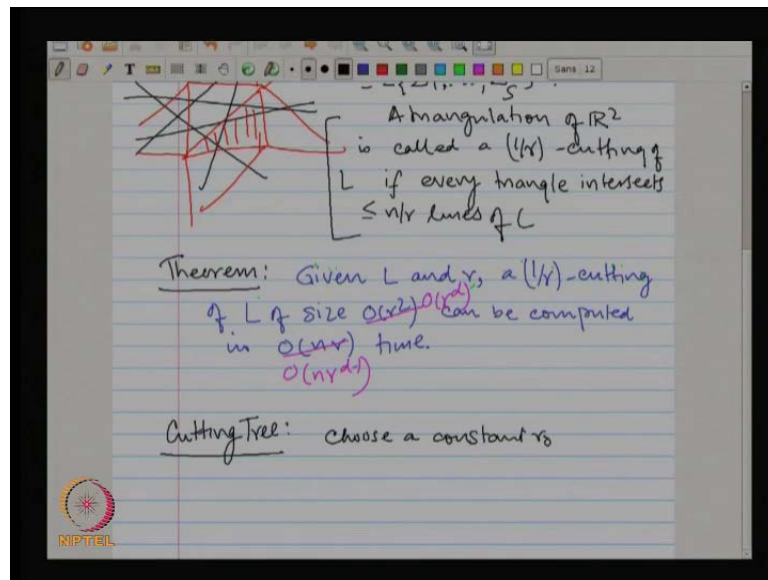 Sans 12
A triangulation of ℝ²
is called a (1/r)-cutting of
L if every triangle intersects
≤ n/r lines of L
Theorem: Given L and r, a (1/r)-cutting
of L of size O(r²) O(r^d) can be computed
in O(nr) time.
O(nr^{d-1})
Cutting Tree: Choose a constant r₀
NPTEL